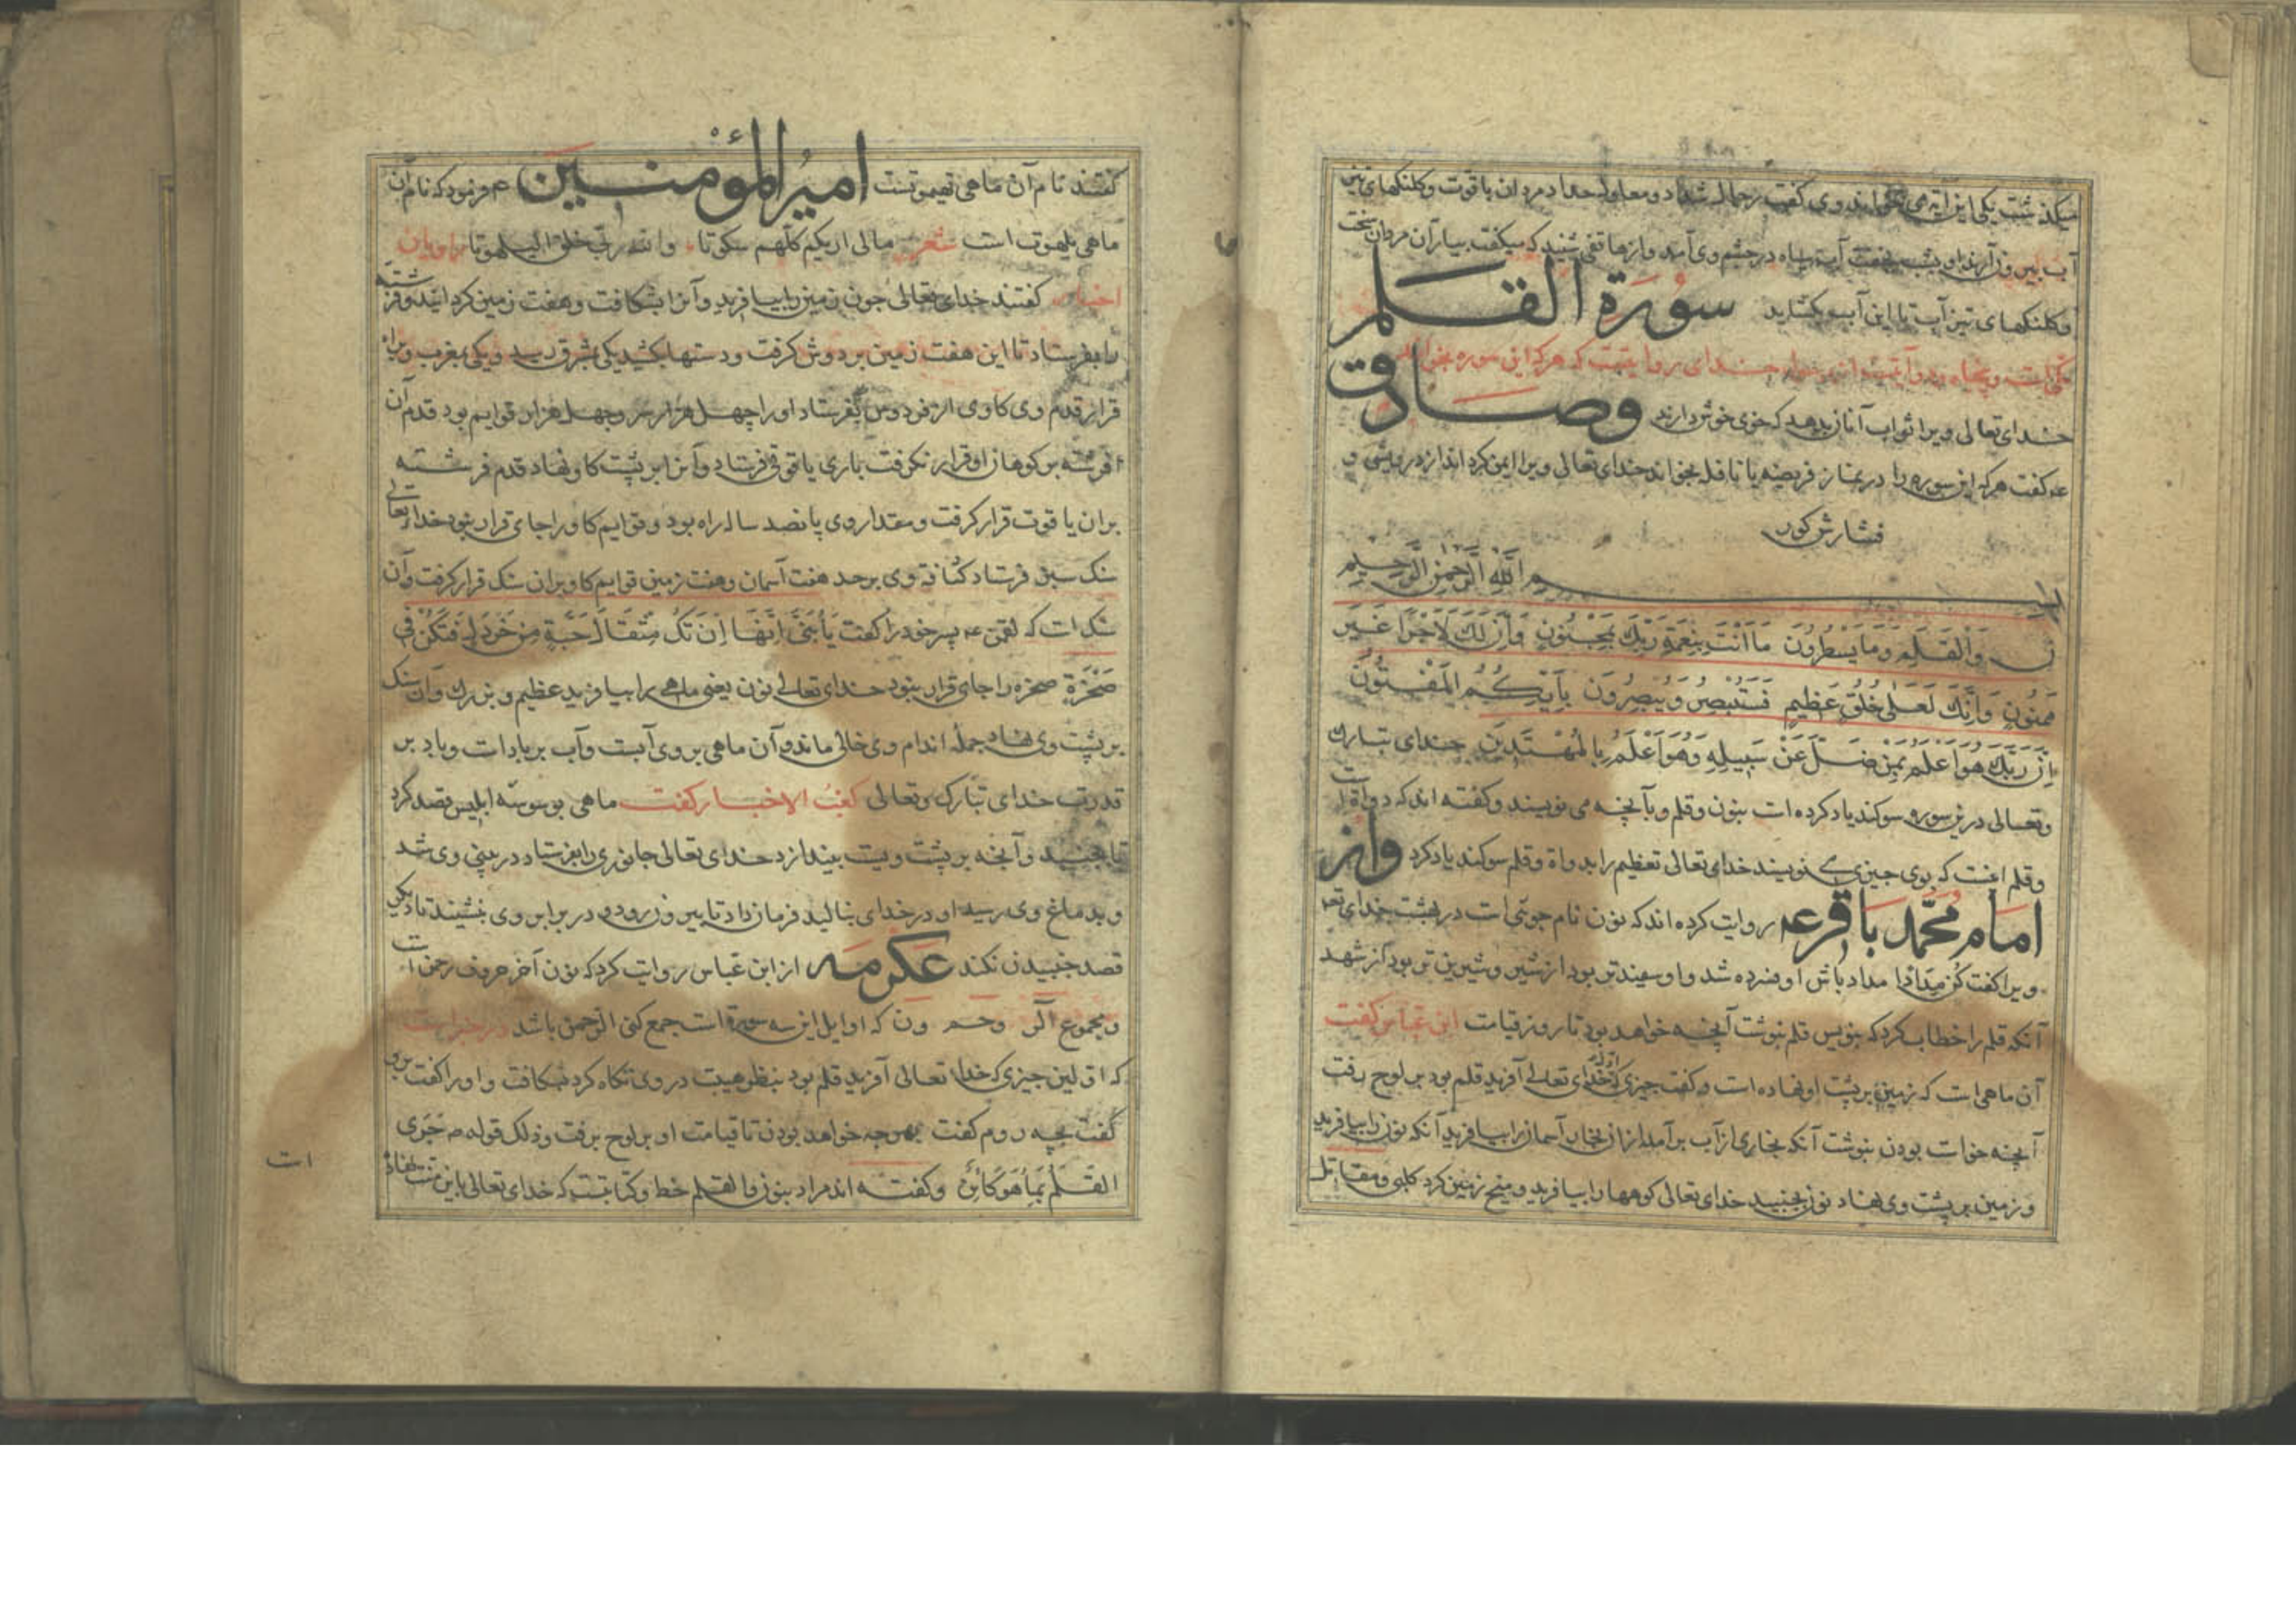 میکذشت یکی این آیه می خواند وی کفت رجال شداد و معاول حداد مردان با قوت و کلنکهای تیز
آب بیرون آرند او بشب بخفت آب سیاه در چشم وی آمد و از هاتفی شنید که میکفت بیار آن مردان سخت
و کلنکهای تیز آب تا این آب بکشاید سورة القلم
مکی است و پنجاه و دو آیتست از رسول خدای روایتست که هر که این سوره بخواند
خدای تعالی ویرا ثواب آنان بدهد که خوی خوش دارند وصادق
عه کفت هر که این سوره را در نماز فریضه یا نافله بخواند خدای تعالی ویرا ایمن کرداند از درویشی و
فشارش کور
بسم الله الرحمن الرحیم
ن وَالْقَلَمِ وَمَا يَسْطُرُونَ مَا اَنْتَ بِنِعْمَةِ رَبِّكَ بِمَجْنُونٍ وَاِنَّ لَكَ لَاَجْرًا غَيْرَ
مَمْنُونٍ وَاِنَّكَ لَعَلٰى خُلُقٍ عَظِيمٍ فَسَتُبْصِرُ وَيُبْصِرُونَ بِاَيِّكُمُ الْمَفْتُونُ
اِنَّ رَبَّكَ هُوَ اَعْلَمُ بِمَنْ ضَلَّ عَنْ سَبِيلِهِ وَهُوَ اَعْلَمُ بِالْمُهْتَدِينَ خدای تبارک
وتعالی درین سوره سوکند یاد کرده است بنون و قلم و بآنچه می نویسند و کفته اند که دواة است
و قلم آنست که بوی چیزی نویسند خدای تعالی تعظیم را بدواة و قلم سوکند یاد کرد واز
امام محمد باقر عه روایت کرده اند که نون نام جویی است در بهشت خدای تعه
ویرا کفت کُن مِدَادًا مداد باش او فسرده شد و او سپیدتر بود از شیر و شیرین تر بود از شهد
آنکه قلم را خطاب کرد که بنویس قلم بنوشت آنچه خواهد بود تا روز قیامت ابن عباس کفت
آن ماهی است که زمین بر پشت او نهاده است و کفت اول چیزی که خدای تعالی آفرید قلم بود بر لوح برفت
آنچه خواست بودن بنوشت آنکه بخاری از آب بر آمد از آن بخار آسمان را بیافرید آنکه نون را بیافرید
و زمین بر پشت وی نهاد نون بجنبید خدای تعالی کوهها را بیافرید و میخ زمین کرد کلبی و مقاتل
کفتند نام آن ماهی بهموتست امیرالمؤمنین ع فرمود که نام آن
ماهی بلهوت است شعر مالی اریکم کلهم سکوتا والله ربی خلق البلهوتا راویان
اخبار کفتند خدای تعالی چون زمین را بیافرید و آنرا بشکافت و هفت زمین کردانید و فرشته
را بفرستاد تا این هفت زمین بر دوش کرفت و دستها بکشید یکی بمشرق رسید و یکی بمغرب ویرا
قرار قدم وی کاوی از فردوس بفرستاد او را چهل هزار سر و چهل هزار قوایم بود قدم آن
فرشته بر کوهان او قرار نکرفت باری یاقوتی فرستاد و آنرا بر پشت کاو نهاد قدم فرشته
بران یاقوت قرار کرفت و مقدار وی پانصد ساله راه بود و قوایم کاو را جای قرار نبود خدای تعالی
سنک سبز فرستاد کثافة وی بر حد هفت آسمان و هفت زمین قوایم کاو بران سنک قرار کرفت و آن
سنک است که لقمن عه پسر خود را کفت يَا بُنَيَّ اِنَّهَا اِنْ تَكُ مِثْقَالَ حَبَّةٍ مِنْ خَرْدَلٍ فَتَكُنْ فِي
صَخْرَةٍ صخره را جای قرار نبود خدای تعالی نون یعنی ماهی را بیافرید عظیم و بزرک و آن سنک
بر پشت وی نهاد جمله اندام وی خالی ماند و آن ماهی بر روی آبست و آب بر باد است و باد بر
قدرت خدای تبارک وتعالی کعب الاخبار کفت ماهی بوسوسه ابلیس قصد کرد
تا بجنبد و آنچه بر پشت ویست بیندازد خدای تعالی جانوری را بفرستاد در بینی وی شد
و بدماغ وی رسید او در خدای بنالید فرمان داد تا بیرون رود و در برابر وی بنشیند تا دیکر
قصد جنبیدن نکند عکرمه از ابن عباس روایت کرد که نون آخر حروف رحمن است
و مجموع الر وحم ون که اوایل این سه سورة است جمع کنی الرحمن باشد در خبر است
که اولین چیزی که خدا تعالی آفرید قلم بود بنظر هیبت در وی نکاه کرد بشکافت و او را کفت برو
کفت بچه روم کفت بهرچه خواهد بودن تا قیامت او بر لوح برفت وذلک قوله صه جَرَى
القَلَمُ بِمَا هُوَ كَائِنٌ و کفته اند مراد بنون والقلم خط و کتابتست که خدای تعالی باین منت نهاد
است